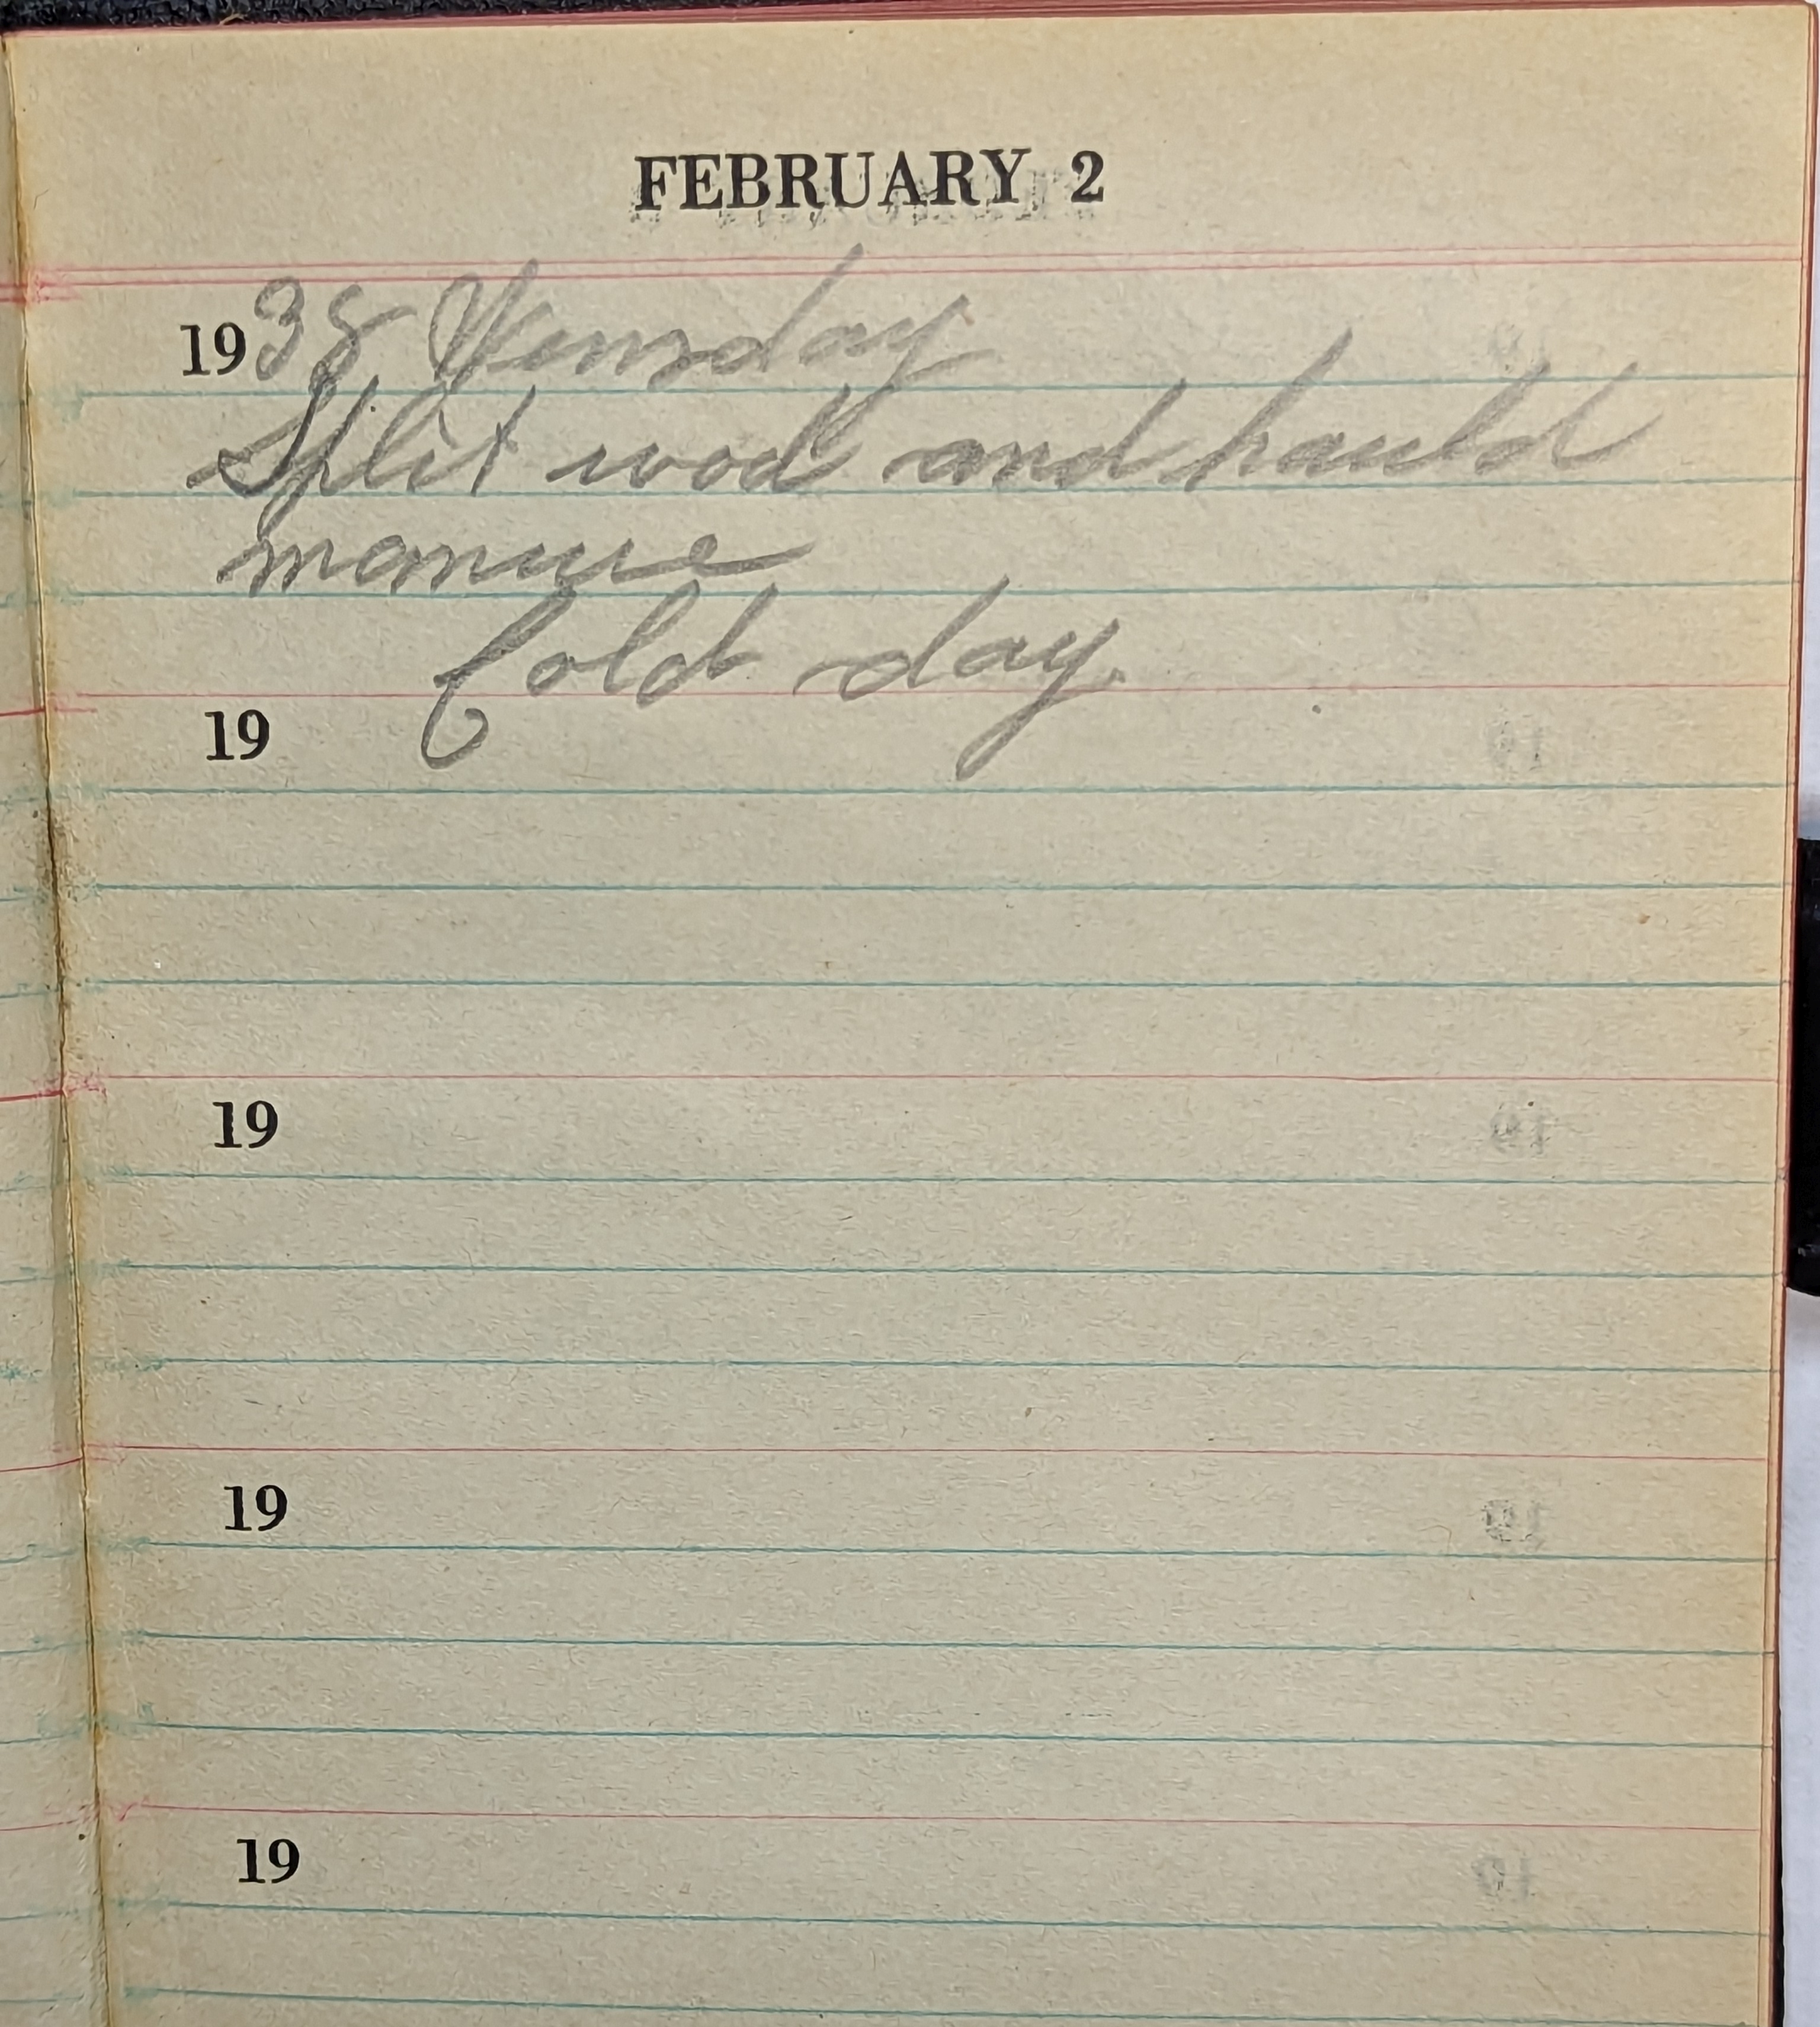 FEBRUARY 2
1938 Wensday
Split wod and hauld
manure
Cold day.
19
19
19
19